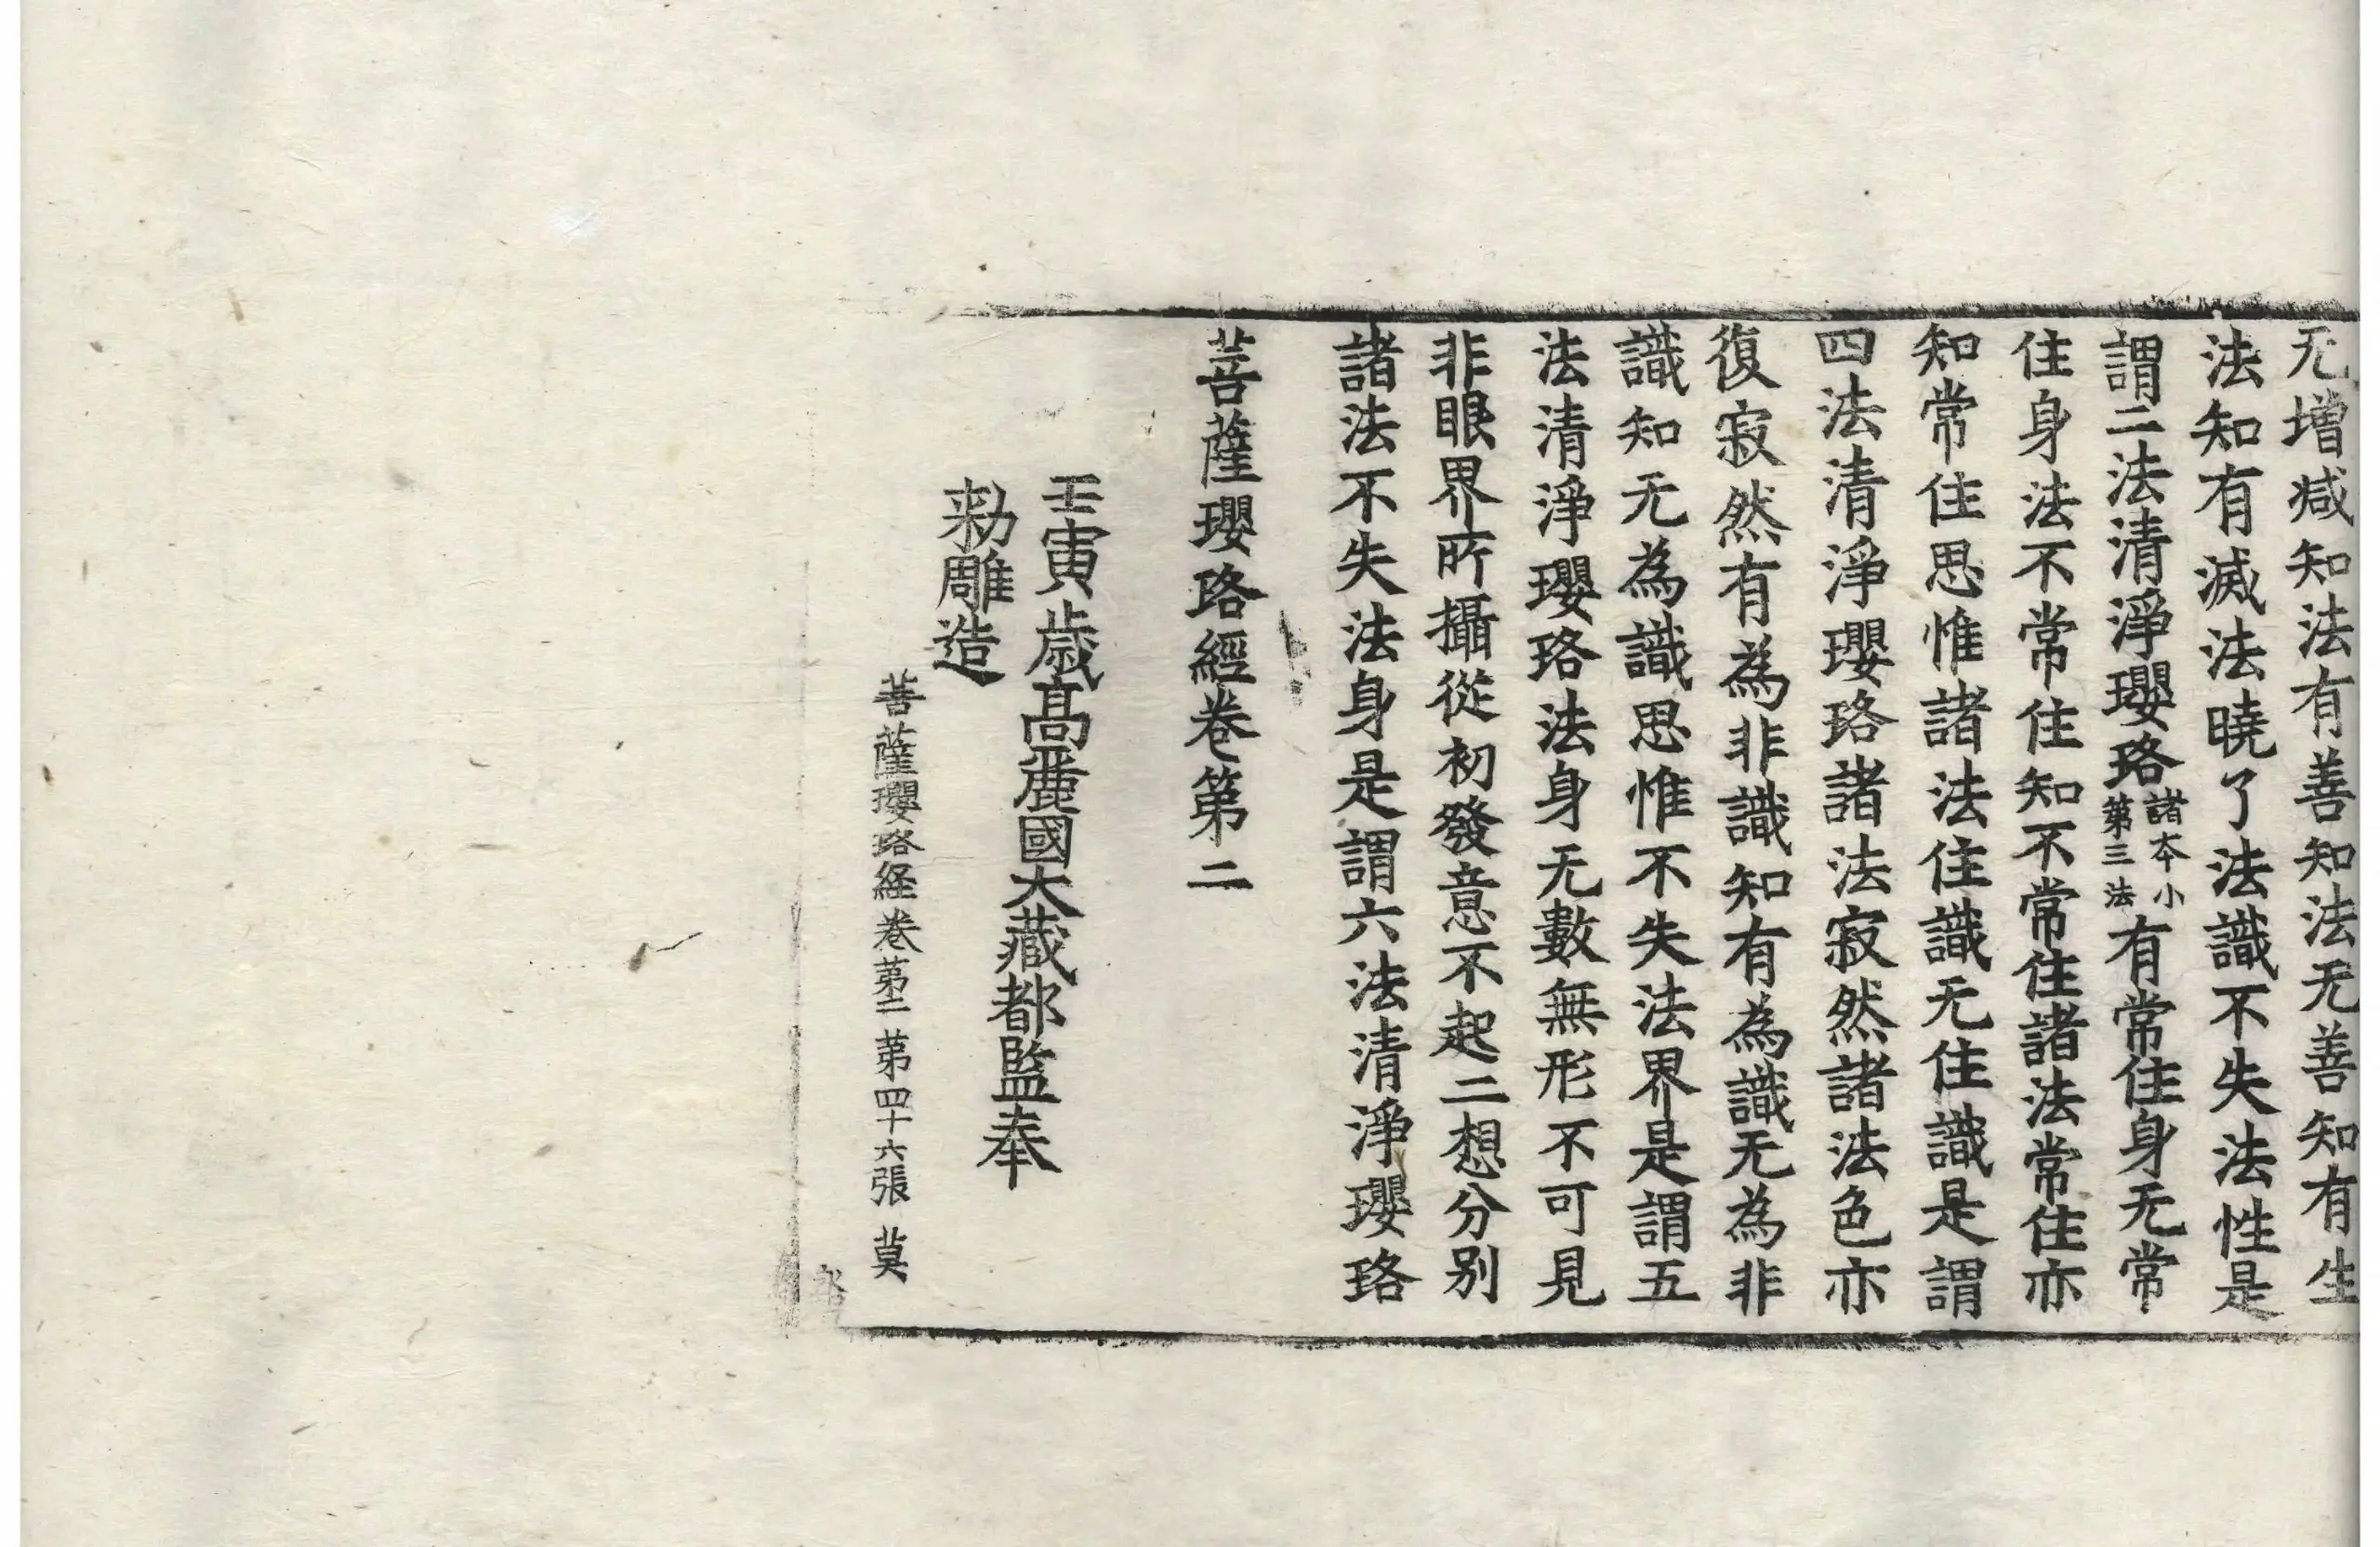 无增减知法有善知法无善知有生
法知有滅法曉了法識不失法性是
謂二法清淨瓔珞諸本小第三法有常住身无常
住身法不常住知不常住諸法常住亦
知常住思惟諸法住識无住識是謂
四法清淨瓔珞諸法寂然諸法色亦
復寂然有為非識知有為識无為非
識知无為識思惟不失法界是謂五
法清淨瓔珞法身无數無形不可見
非眼界所攝從初發意不起二想分別
諸法不失法身是謂六法清淨瓔珞
菩薩瓔珞經卷第二
壬寅歲高麗國大藏都監奉
勑雕造
菩薩瓔珞経卷苐二 苐四十六張 莫